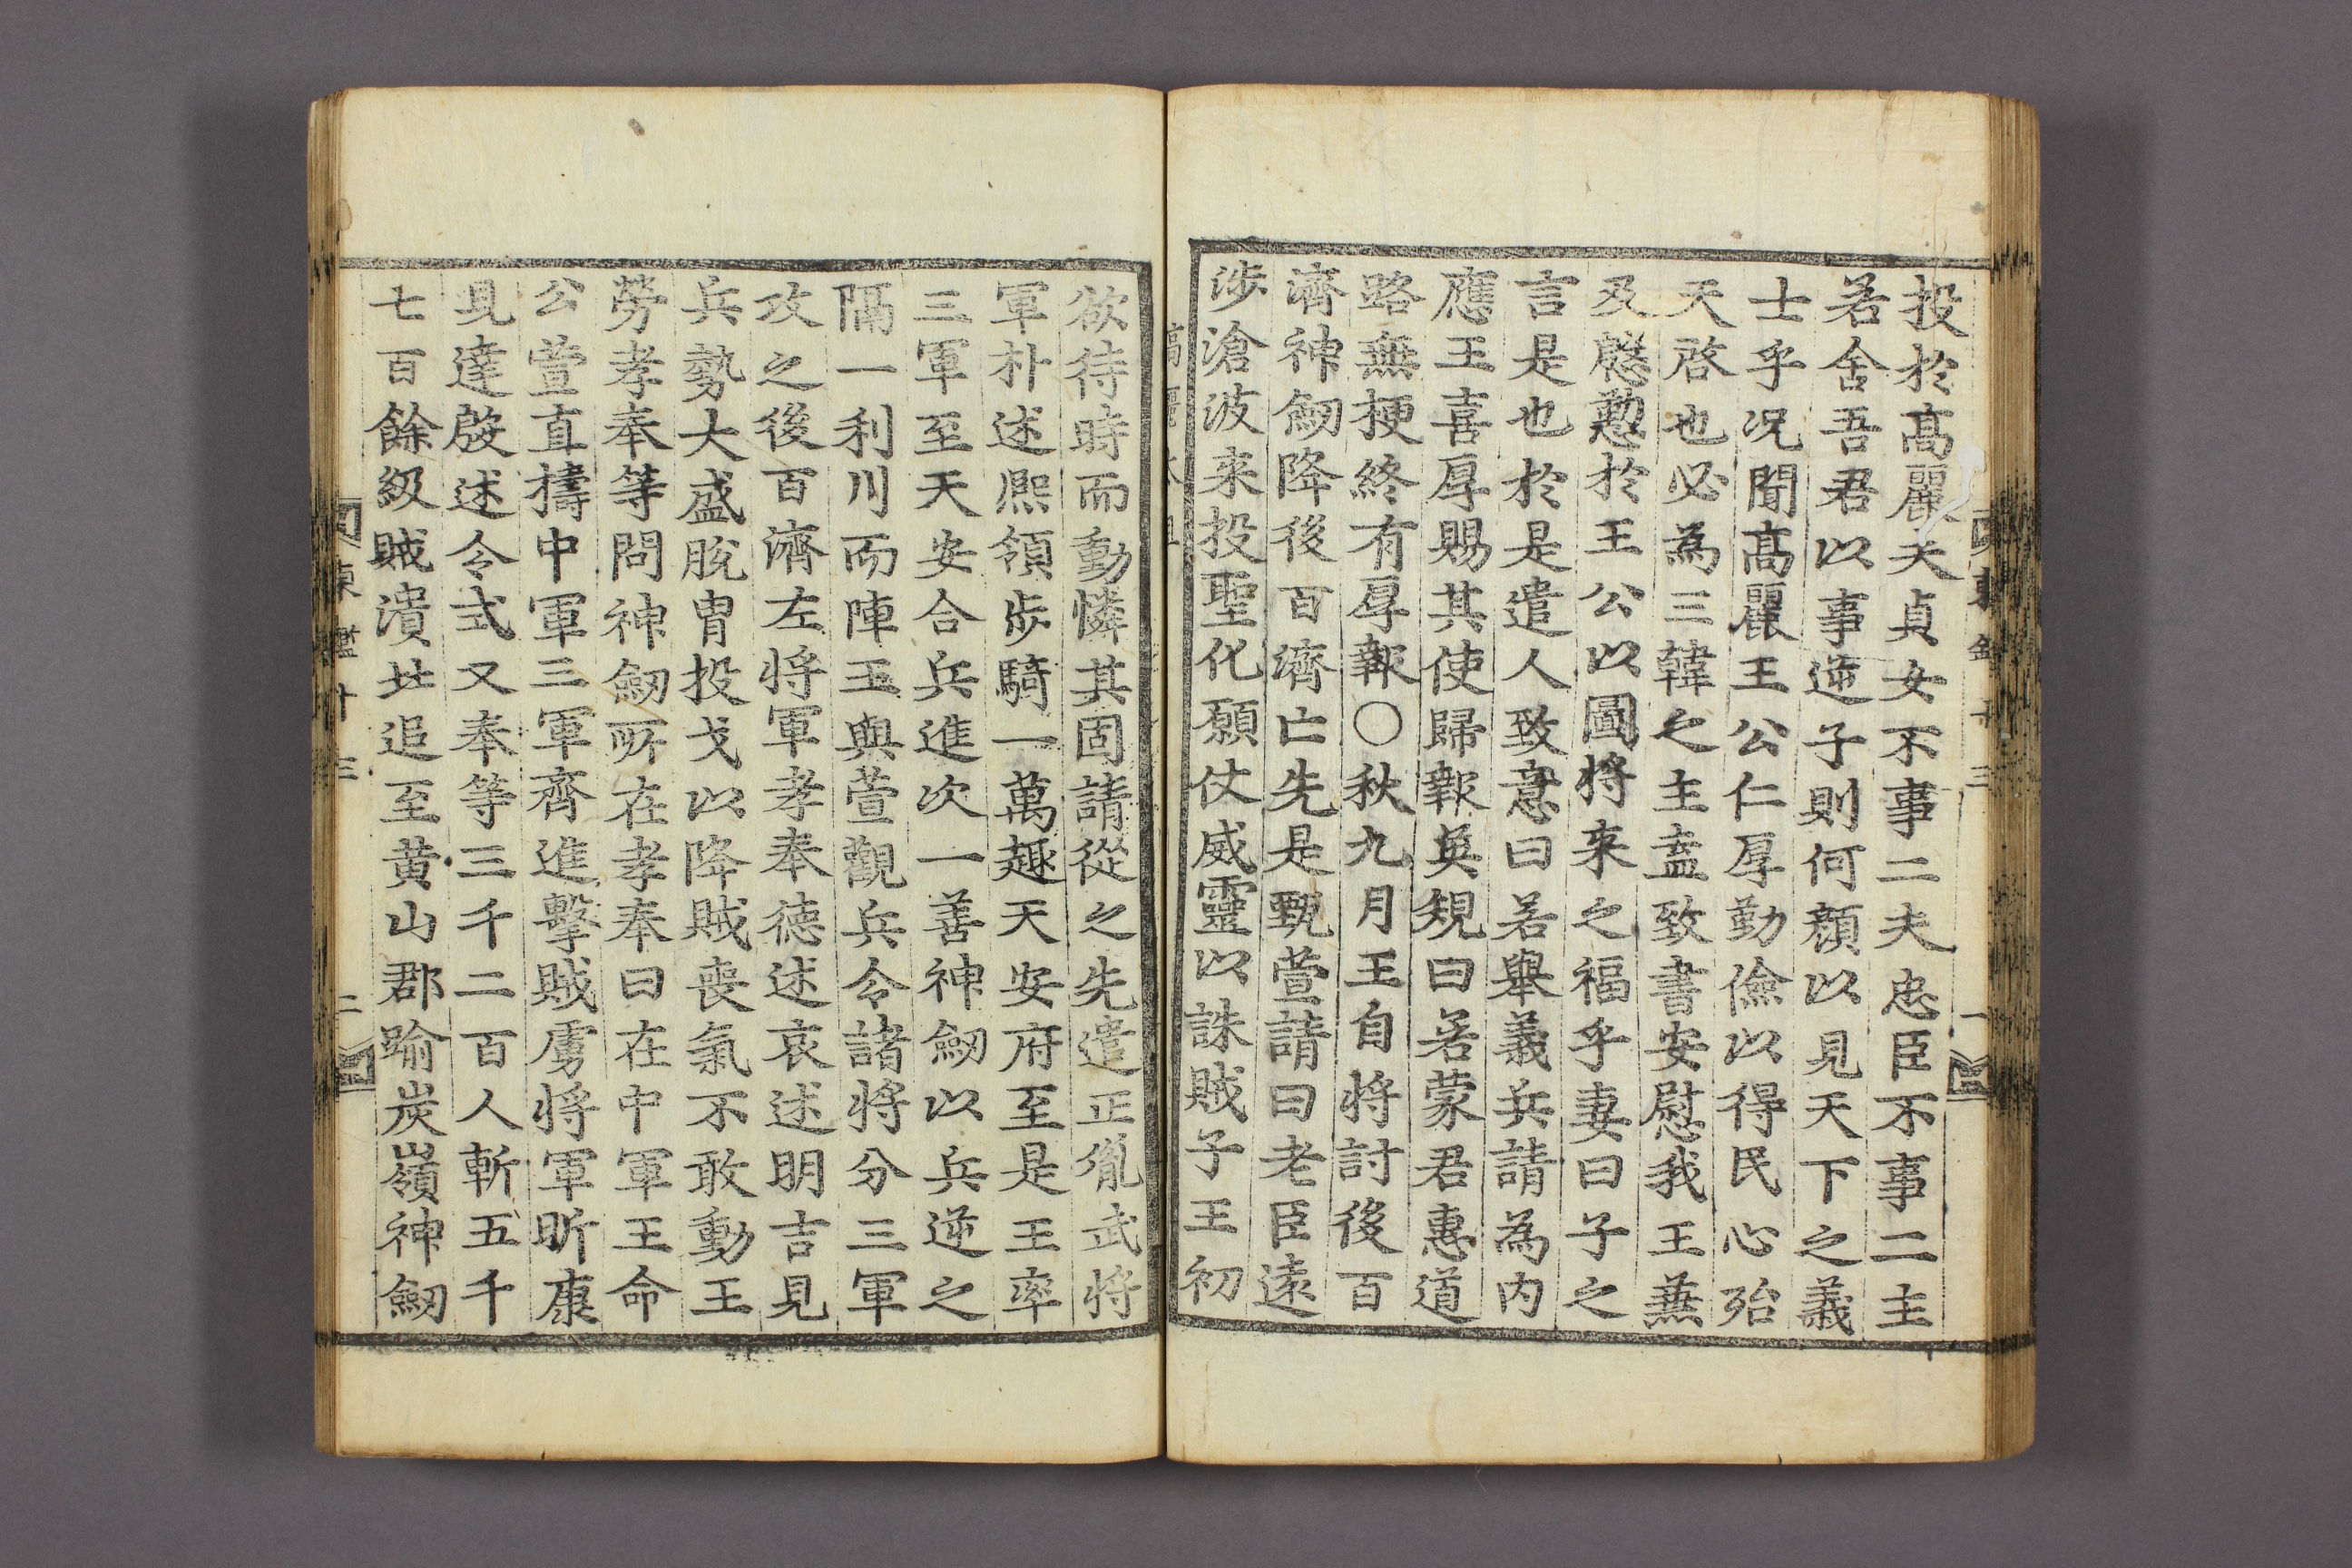 投於髙麗夫貞女不事二夫忠臣不事二主
若舍吾君以事逆子則何顔以見天下之義
士乎况聞髙麗王公仁厚勤儉以得民心殆
天啓也必為三韓之主盍致書安慰我王兼
及慇懃於王公以圖将来之福乎妻曰子之
言是也於是遣人致意曰若舉義兵請為内
應王喜厚賜其使歸報英規曰若蒙君惠道
路無梗終有厚報〇秋九月王自将討後百
濟神劒降後百濟亡先是甄萱請曰老臣遠
涉滄波来投聖化願仗威靈以誅賊子王初
欲待時而動憐其固請從之先遣正胤武将
軍朴述熈領歩騎一萬趣天安府至是王率
三軍至天安合兵進次一善神劒以兵逆之
隔一利川而陣王與萱觀兵令諸将分三軍
攻之後百濟左将軍孝奉德述哀述明吉見
兵勢大盛脫胄投戈以降賊喪氣不敢動王
勞孝奉等問神劒所在孝奉曰在中軍王命
公萱直擣中軍三軍齊進擊賊虜将軍昕康
見達殷述令式又奉等三千二百人斬五千
七百餘級賊潰北追至黄山郡踰炭嶺神劒
東鑑十三
二